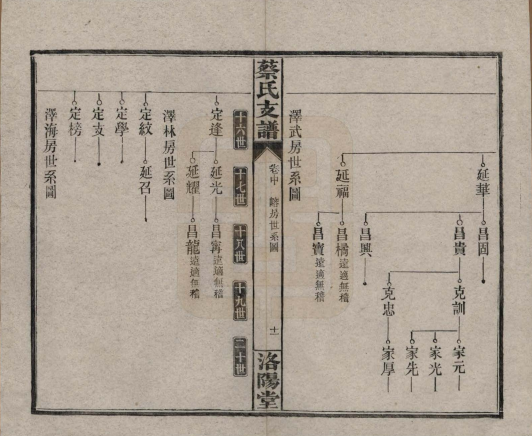 延華
昌固
昌貴
克訓
家元
家光
家先
克忠
家厚
昌興
延福
昌橋遠適無稽
昌寶遠適無稽
澤武房世系圖
蔡氏支譜
卷中
房世系圖
十一
洛陽堂
十六世
十七世
十八世
十九世
二十世
定逢
延光
昌甯遠適無稽
延耀
昌龍遠適無稽
澤林房世系圖
定紋
延召
定學
定支
定榜
澤海房世系圖